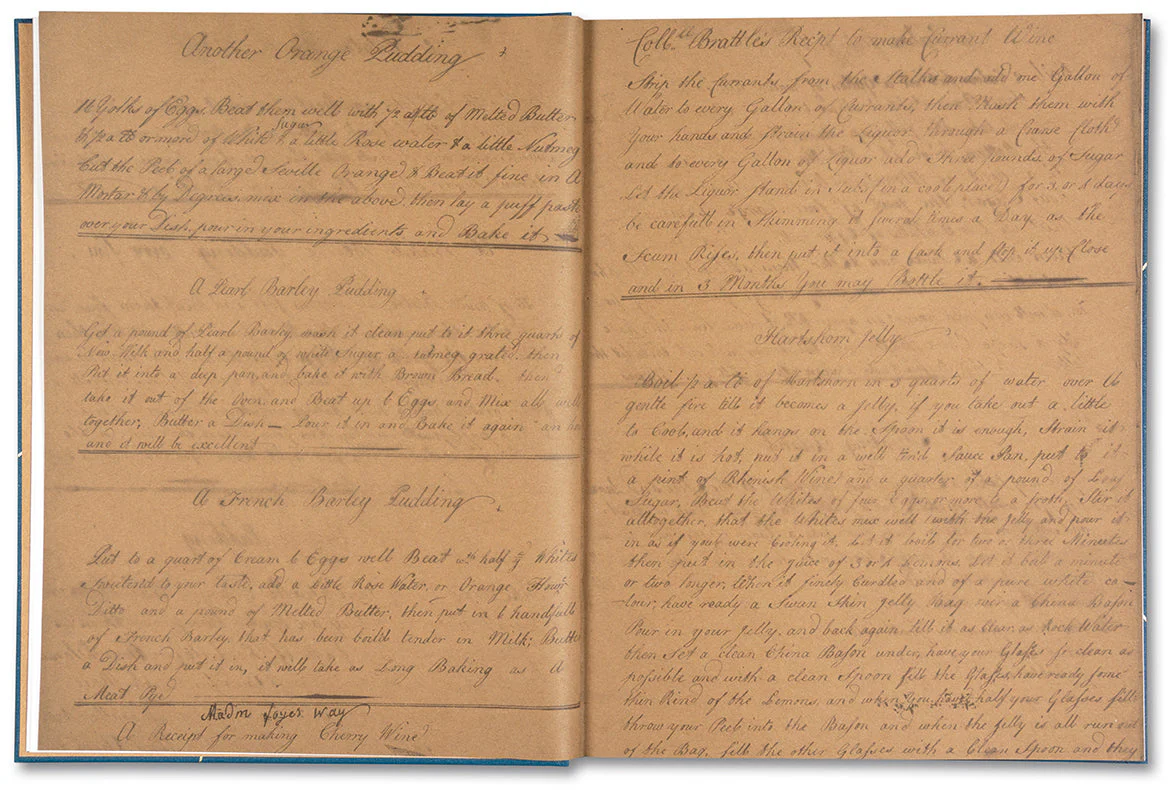 Another Orange Pudding
16 Yolks of Eggs. Beat them well with 1/2 a lb of Melted Butter
1/2 a lb or more of White Sugar & a little Rose water & a little Nutmeg
Cut the Peel of a large Seville Orange & Beat it fine in a
Mortar & by Degrees, mix in the above, then lay a puff paste
over your Dish, pour in your ingredients and Bake it
A Pearl Barley Pudding
Get a pound of Pearl Barley, wash it clean put to it three quarts of
New Milk and half a pound of white Sugar, a nutmeg grated, then
Put it into a deep pan, and bake it with Brown Bread. then
take it out of the Oven, and Beat up 6 Eggs, and Mix all well
together, Butter a Dish — Pour it in and Bake it again an ho
and it will be excellent
A French Barley Pudding
Put to a quart of Cream 6 Eggs well Beat wth half ye Whites
Sweetend to your taste, add a Little Rose Water, or Orange Flowr
Ditto and a pound of Melted Butter, then put in 6 handfull
of French Barley, that has been boild tender in Milk; Butte
a Dish and put it in, it will take as Long Baking as a
Meat Pye
Madm Joyes Way
A Receipt for making Cherry Wine
Coll. Brattle's Recipt to make Currant Wine
Strip the Currants from the Stalks and add one Gallon of
Water to every Gallon of Currants, then Mash them with
Your hands and strain the Liquor through a Coarse Cloth
and to every Gallon of Liquor add Three pounds of Sugar
Let the Liquor stand in Tubs (in a cool place) for 3 or 4 days
be carefull in Skimming it several times a Day, as the
Scum Rises, then put it into a Cask and stop it up Close
and in 3 Months You may Bottle it.
Hartshorn Jelly
Boil 1/2 a lb of Hartshorn in 3 quarts of water over a
gentle fire till it becomes a jelly, if you take out a little
to Cool, and it hangs on the Spoon it is enough, Strain it
while it is hot, put it in a well tin'd Sauce Pan, put to it
a pint of Rhenish Wine, and a quarter of a pound of Loaf
Sugar, Beat the Whites of four Eggs or more to a froth, Stir it
alltogether, that the Whites mix well with the Jelly and pour it
in as if you were Cooling it. Let it boil for two or three Minuites
then put in the juice of 3 or 4 Lemons, Let it boil a minute
or two longer, When it finely Curdled and of a pure white co-
lour, have ready a Swan Skin Jelly Baag over a China Bason
Pour in your Jelly, and back again, till it as Clear as Rock Water
then Set a clean China Bason under, have your Glasses as clean as
possible and with a clean Spoon fill the Glasses, have ready some
thin Rind of the Lemons, and when you have half your Glasses fill
throw your Peel into the Bason and when the Jelly is all run out
of the Bag, fill the other Glasses with a Clean Spoon and they